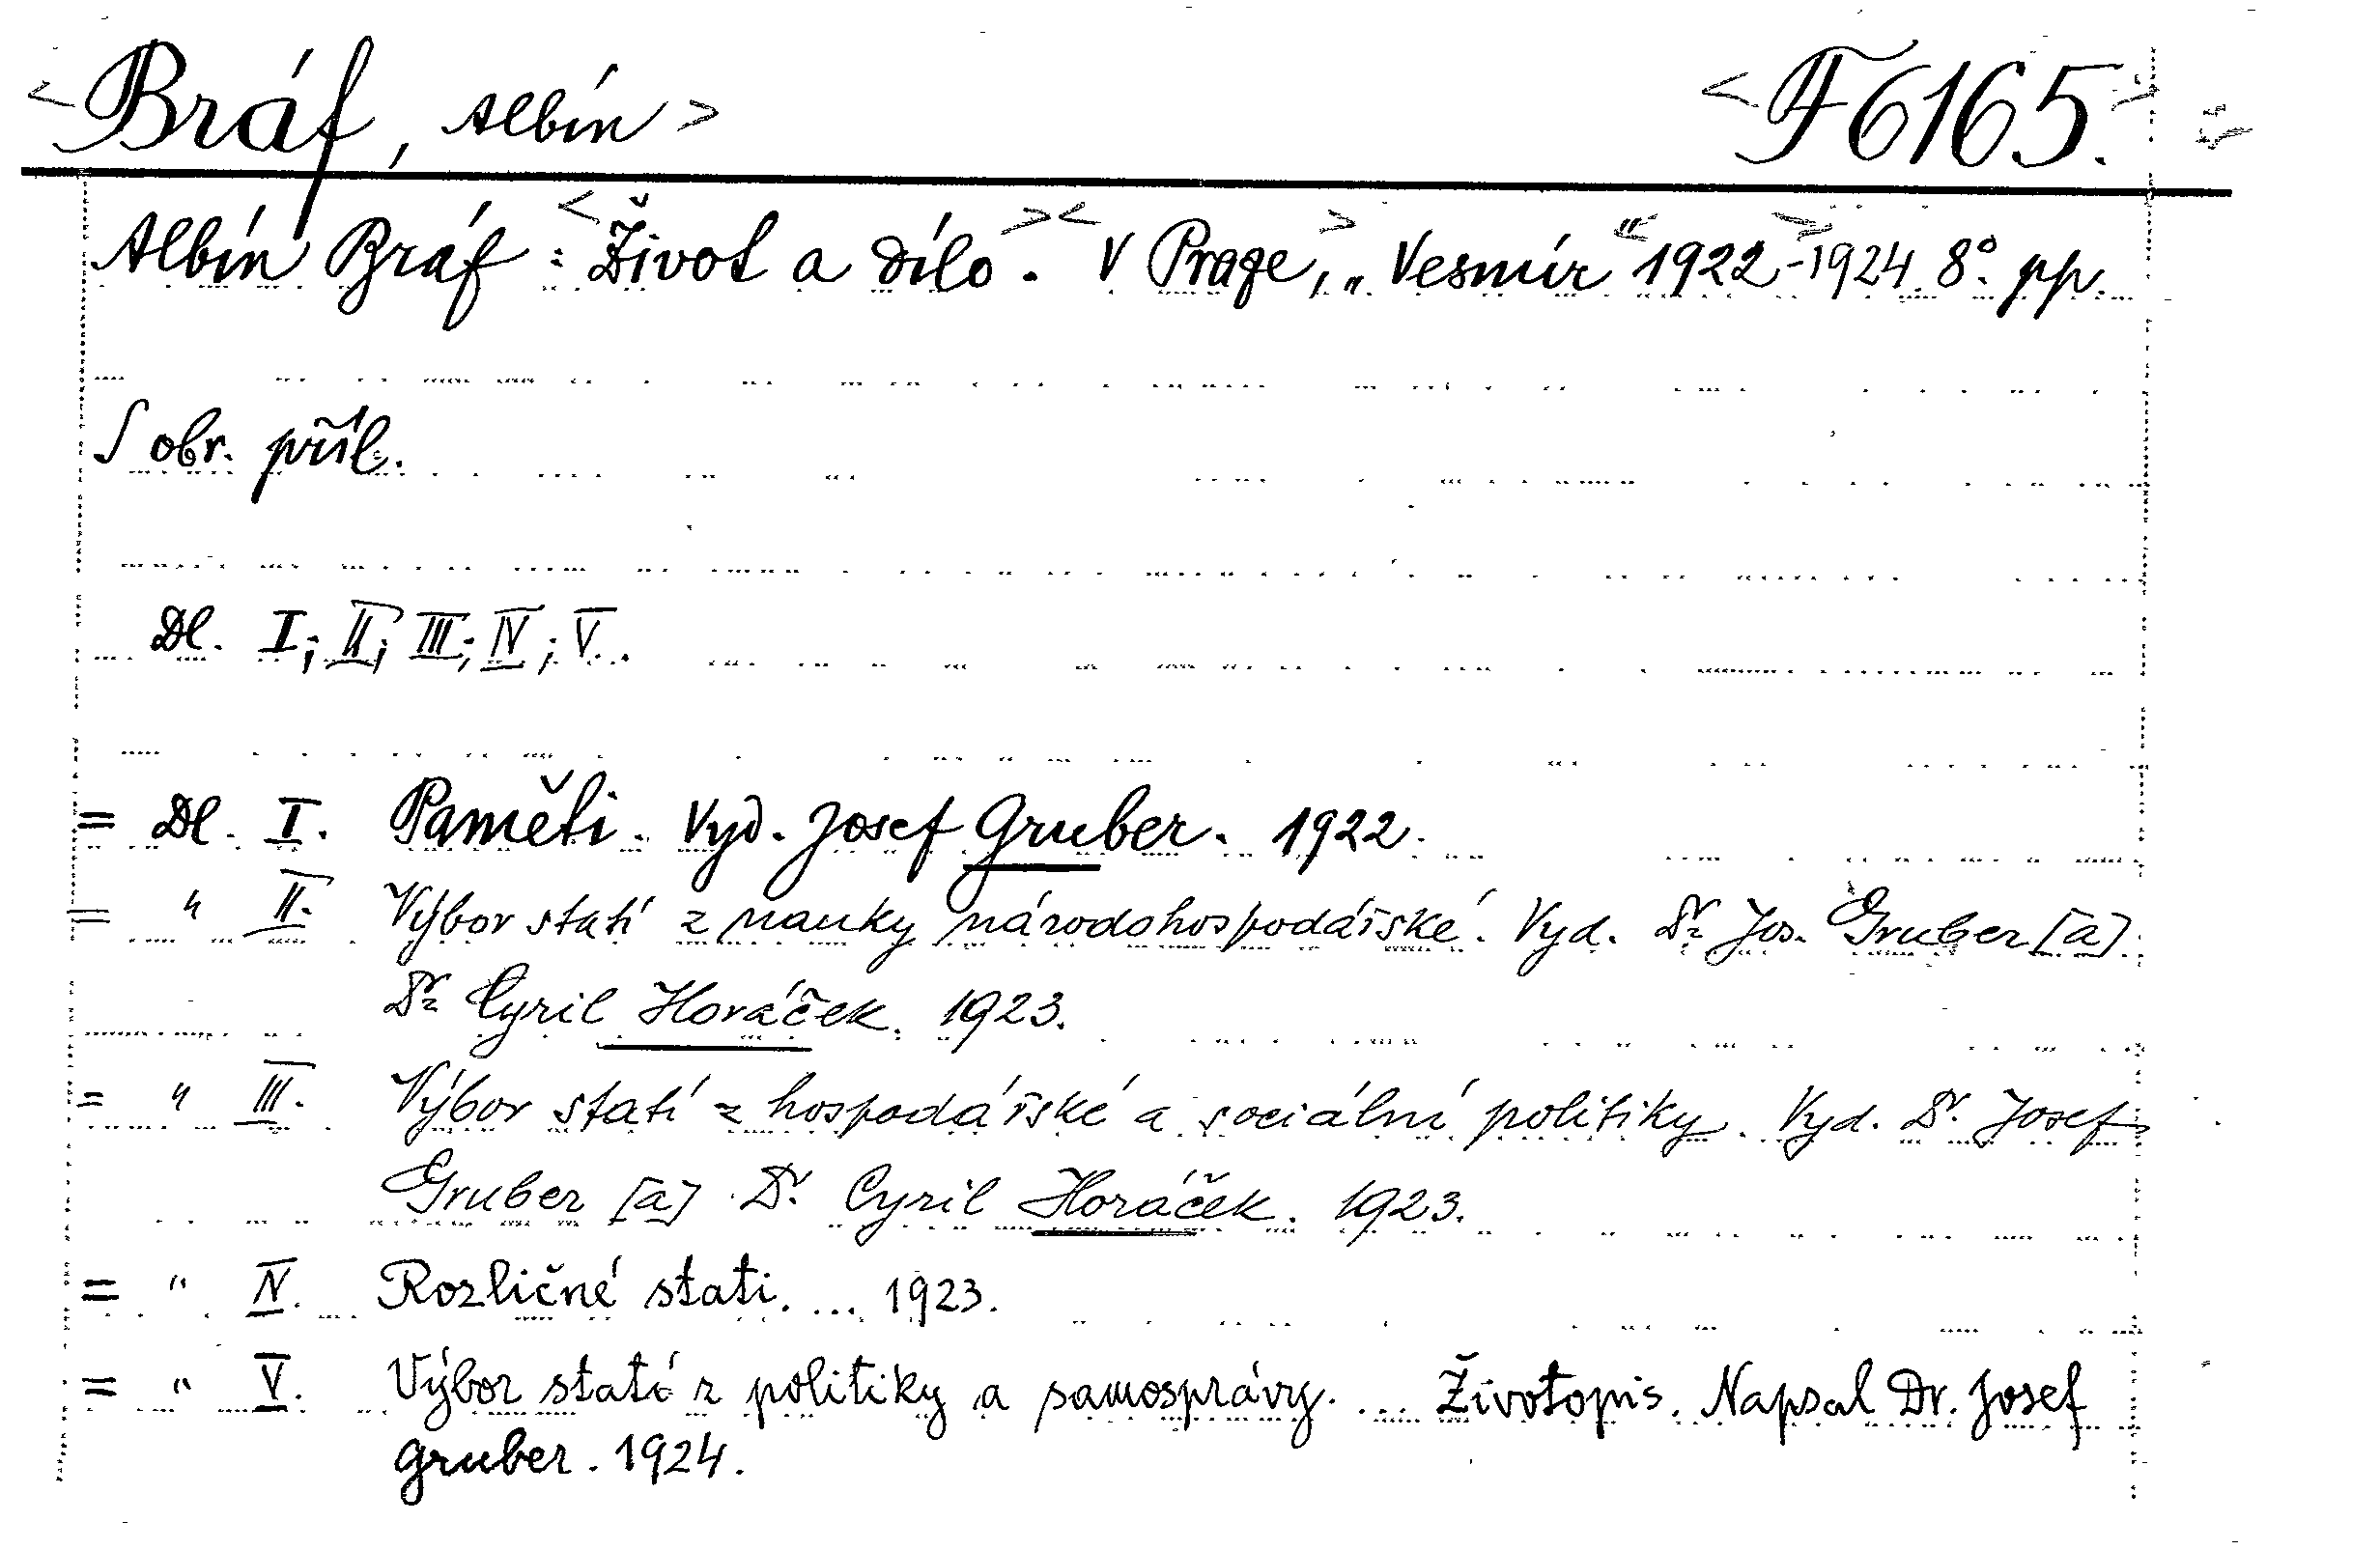 <Bráf, Albín> <F 6165.>
Albín Bráf: <Život a dílo.> <V Praze,> „Vesmír“ 1922-1924. 8°. pp.
S obr. příl.
Dl. I; II; III; IV; V.
= Dl. I. Paměti. Vyd. Josef Gruber. 1922.
= " II. Výbor statí z nauky národohospodářské. Vyd. Dr. Jos. Gruber [a]
Dr. Cyril Horáček. 1923.
= " III. Výbor statí z hospodářské a sociální politiky. Vyd. Dr. Josef
Gruber [a] Dr. Cyril Horáček. 1923.
= " IV. Rozličné stati. ... 1923.
= " V. Výbor statí z politiky a samosprávy. ... Životopis. Napsal Dr. Josef
Gruber. 1924.